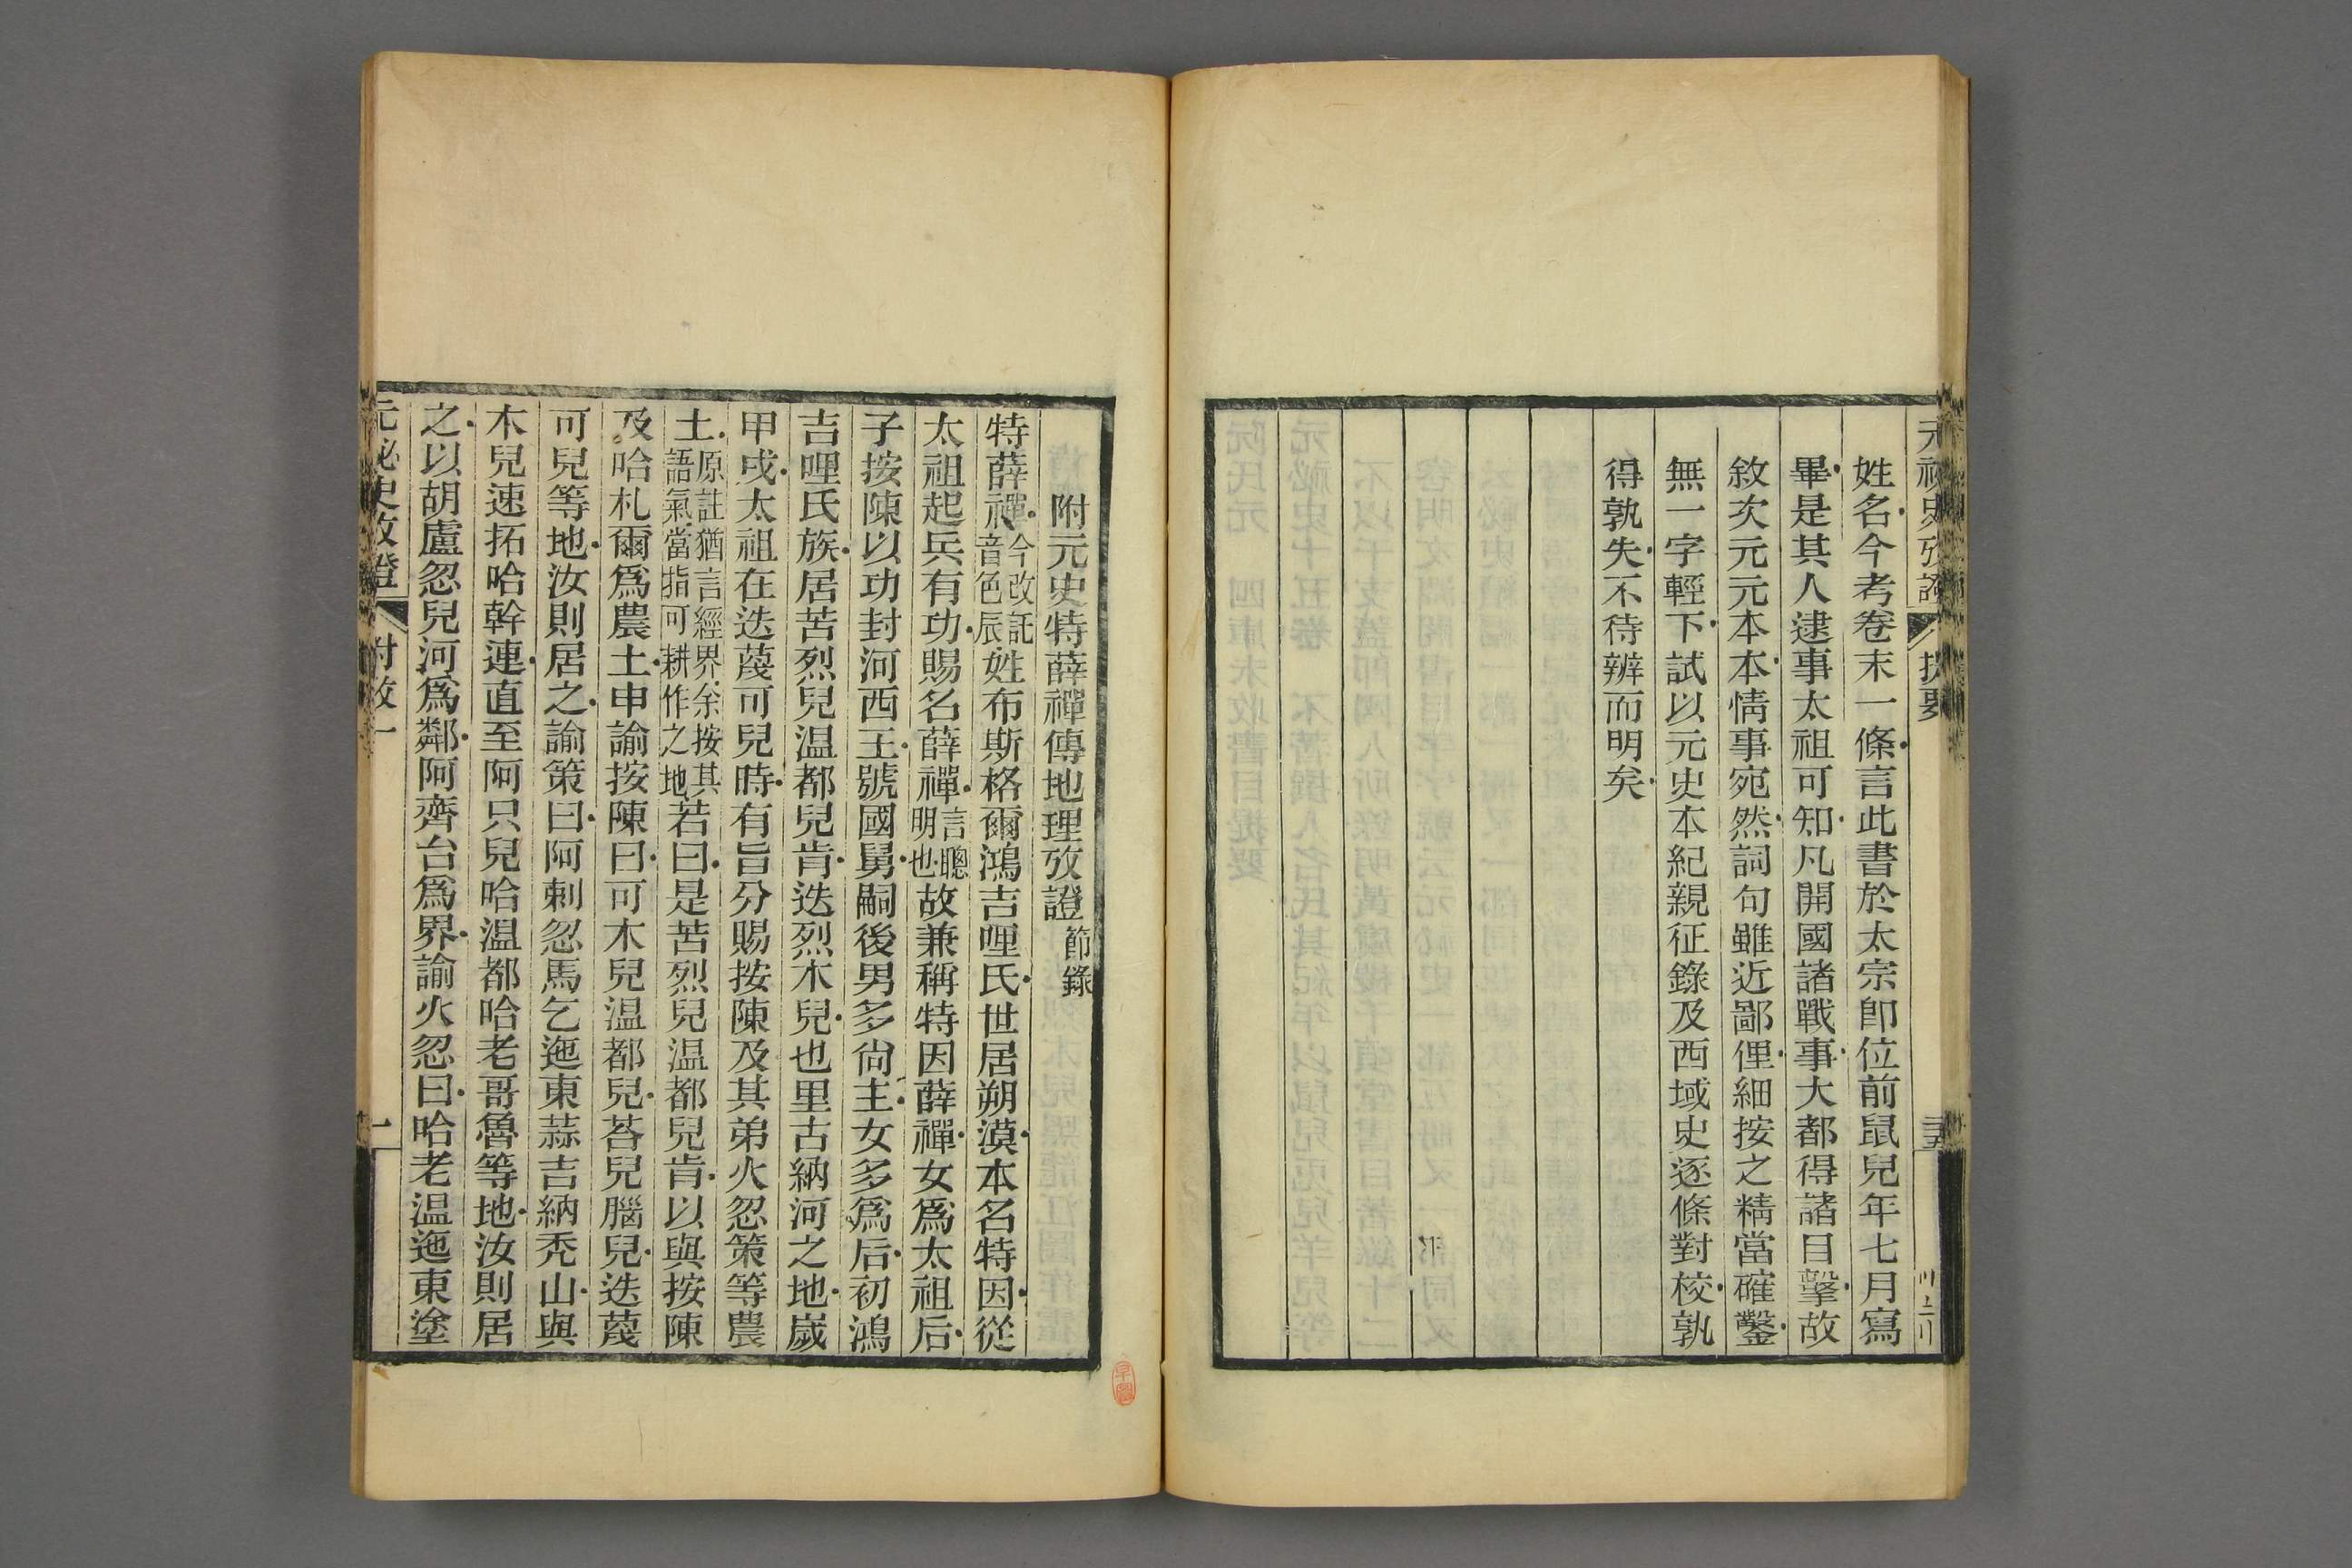 姓名今考卷末一條言此書於太宗卽位前鼠兒年七月寫
畢是其人逮事太祖可知凡開國諸戰事大都得諸目擊故
敘次元元本本情事宛然詞句雖近鄙俚細按之精當確鑿
無一字輕下試以元史本紀親征錄及西域史逐條對校孰
得孰失不待辨而明矣
附元史特薛禪傳地理攷證節錄
特薛禪今改託音色辰姓布斯格爾鴻吉哩氏世居朔漠本名特因從
太祖起兵有功賜名薛禪言聰明也故兼稱特因薛禪女爲太祖后
子按陳以功封河西王號國舅嗣後男多尚主女多爲后初鴻
吉哩氏族居苦烈兒温都兒肯迭烈木兒也里古納河之地嵗
甲戌太祖在迭蔑可兒時有旨分賜按陳及其弟火忽策等農
土原註猶言經界余按其語氣當指可耕作之地若曰是苦烈兒温都兒肯以與按陳
及哈札爾爲農土申諭按陳曰可木兒温都兒荅兒腦兒迭蔑
可兒等地汝則居之諭策曰阿剌忽馬乞迤東蒜吉納禿山與
木兒速拓哈幹連直至阿只兒哈温都哈老哥魯等地汝則居
之以胡盧忽兒河爲鄰阿齊台爲界諭火忽曰哈老温迤東塗
元祕史攷證 附攷一 一